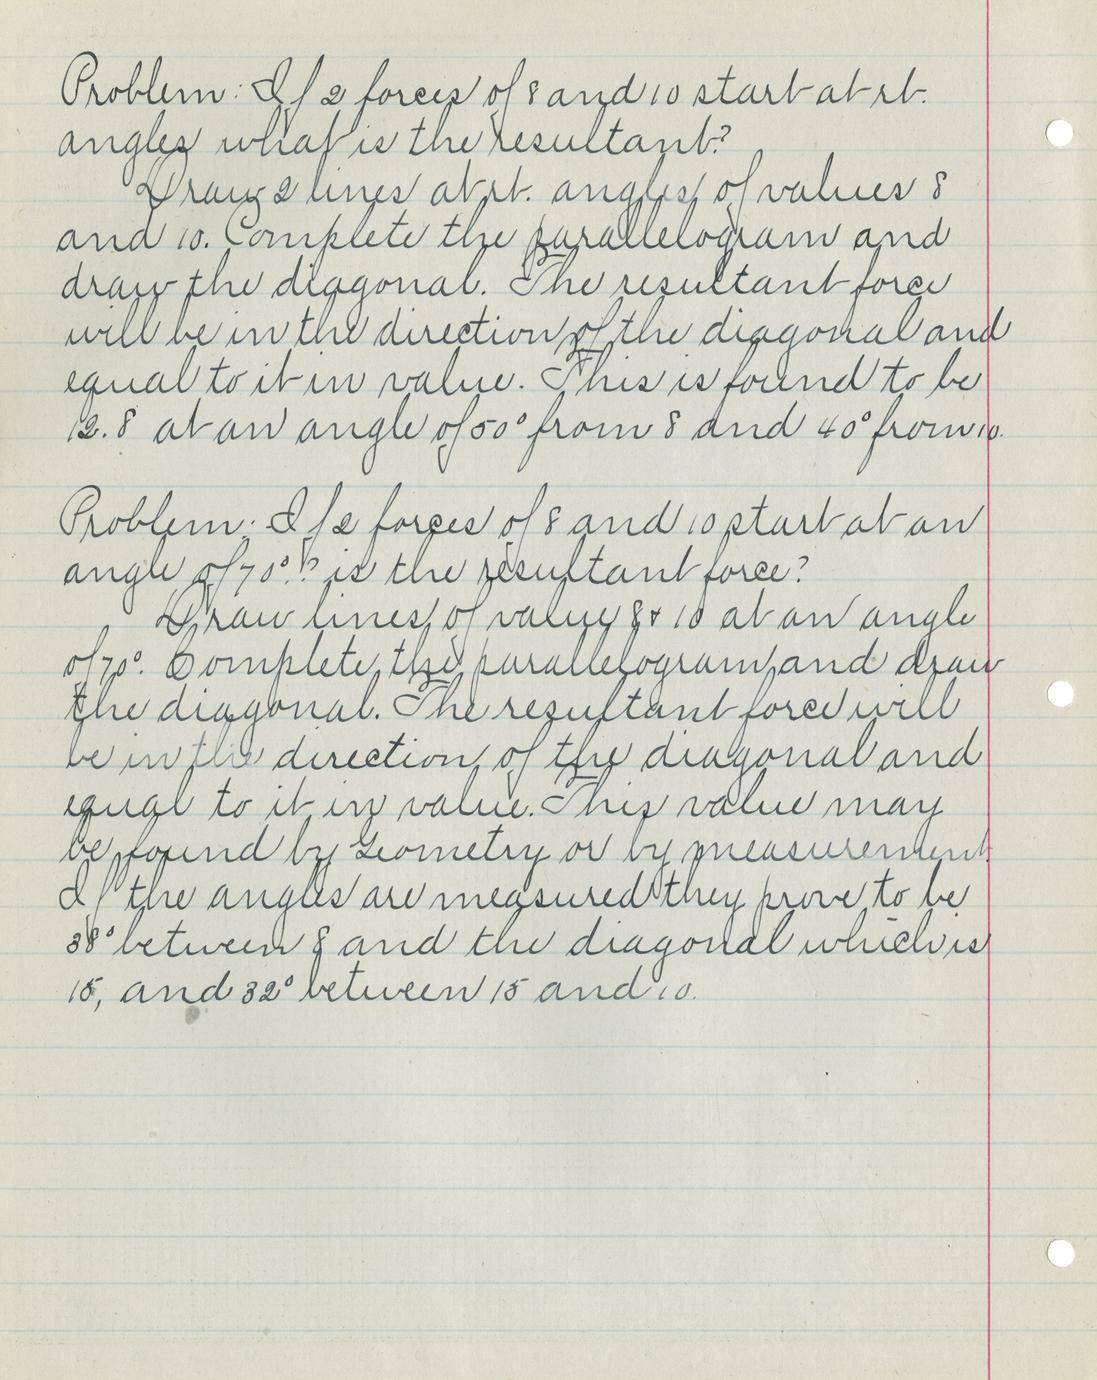 Problem: If 2 forces of 8 and 10 start at rt.
angles what is the resultant?
Draw 2 lines at rt. angles of values 8
and 10. Complete the parallelogram and
draw the diagonal. The resultant force
will be in the direction of the diagonal and
equal to it in value. This is found to be
12.8 at an angle of 50° from 8 and 40° from 10.
Problem: If 2 forces of 8 and 10 start at an
angle of 70° is the resultant force?
Draw lines of value 8 & 10 at an angle
of 70°. Complete the parallelogram and draw
the diagonal. The resultant force will
be in the direction of the diagonal and
equal to it in value. This value may
be found by Geometry or by measurement
If the angles are measured they prove to be
38° between 8 and the diagonal which is
15, and 32° between 15 and 10.